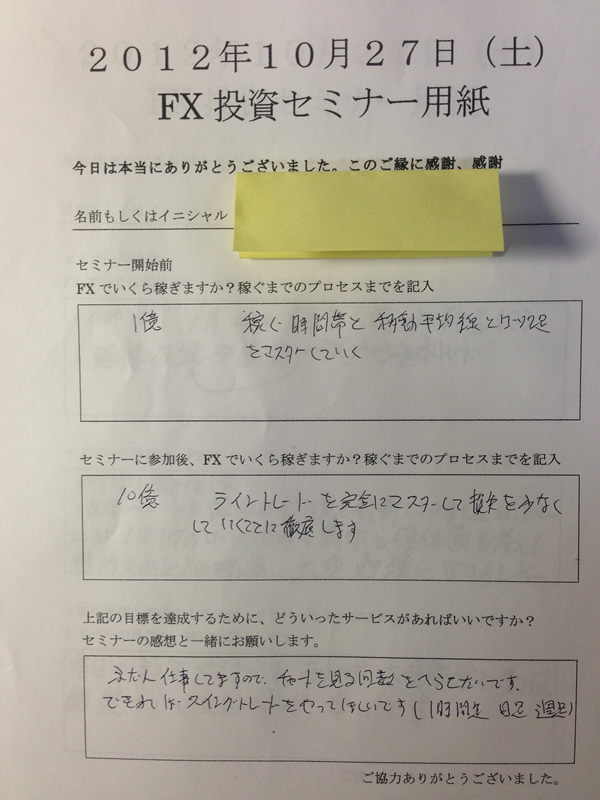 2012年10月27日（土）
FX投資セミナー用紙
今日は本当にありがとうございました。このご縁に感謝、感謝
名前もしくはイニシャル
セミナー開始前
FXでいくら稼ぎますか？稼ぐまでのプロセスまでを記入
1億 稼ぐ時間帯と移動平均線とローソク足
をマスターしていく
セミナーに参加後、FXでいくら稼ぎますか？稼ぐまでのプロセスまでを記入
10億 ライントレードを完全にマスターして損失を少なく
していくことに徹底します
上記の目標を達成するために、どういったサービスがあればいいですか？
セミナーの感想と一緒にお願いします。
仕事してますので、チャートを見る回数をへらしたいです。
できればスイングトレードをやってほしいです(1時間足 日足 週足)
ご協力ありがとうございました。